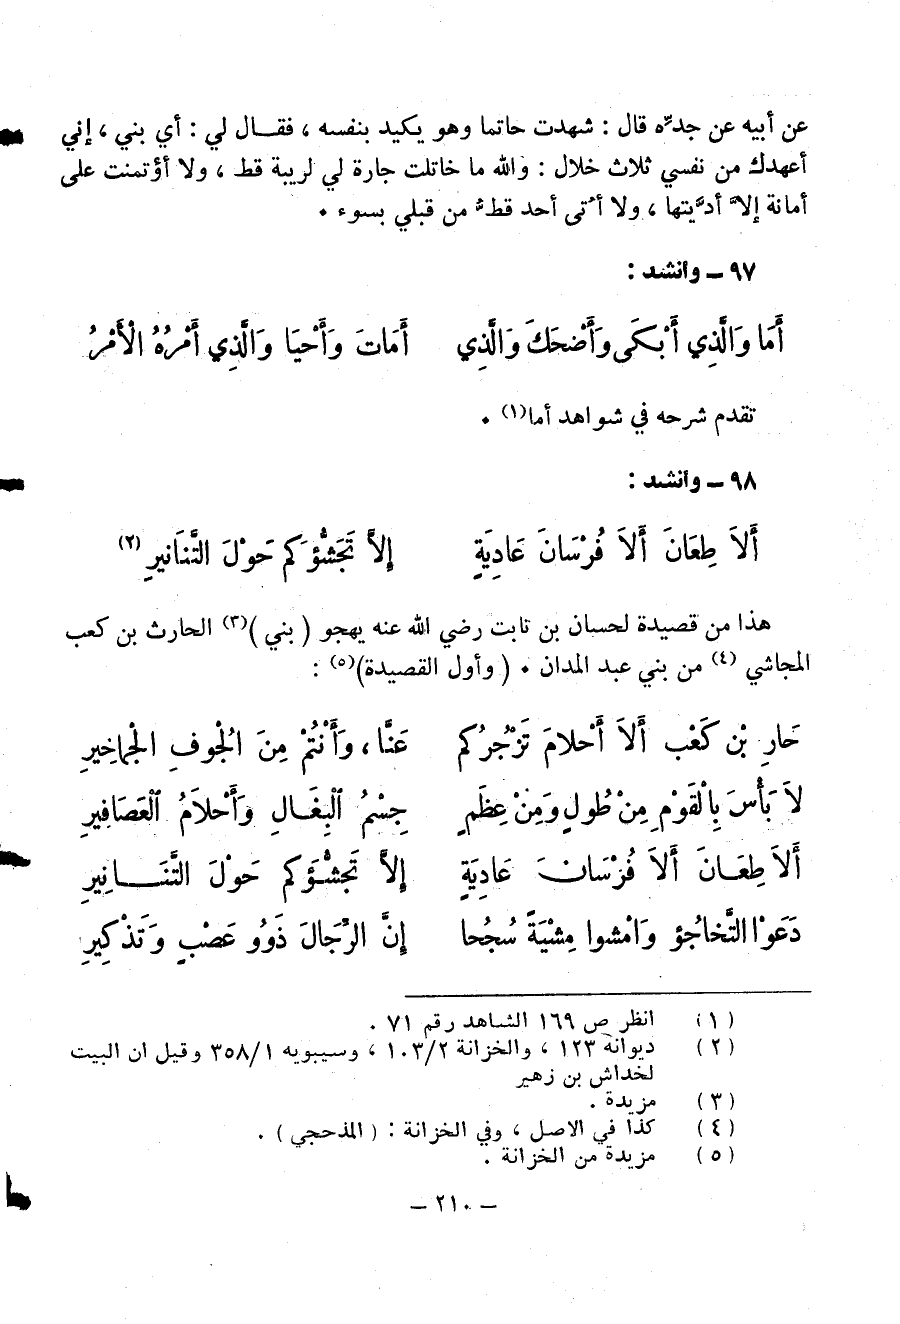 عن أبيه عن جدّه قال : شهدت حاتما وهو يكيد بنفسه ، فقال لي : أي بني ، إني
أعهدك من نفسي ثلاث خلال : والله ما خاتلت جارة لي لريبة قط ، ولا أؤتمنت على
أمانة إلاّ أدّيتها ، ولا أُتى أحد قطُّ من قبلي بسوء .
٩٧ ــ وانشد :
أَمَا وَالَّذِي أَبْكَى وَأَضْحَكَ وَالَّذِي     أَمَاتَ وَأَحْيَا وَالَّذِي أَمْرُهُ الْأَمْرُ
تقدم شرحه في شواهد أما(١) .
٩٨ ــ وانشد :
أَلاَ طِعَانَ أَلاَ فُرْسَانَ عَادِيَةٍ     إِلاَّ تَجَشُّؤَكم حَوْلَ التَّنَانِيرِ (٢)
هذا من قصيدة لحسان بن ثابت رضي الله عنه يهجو ( بني )(٣) الحارث بن كعب
المجاشي (٤) من بني عبد المدان . ( وأول القصيدة)(٥) :
حَارِ بْن كَعْب أَلاَ أَحْلامَ تَزْجُرُكم     عَنَّا ، وَأَنْتُمْ مِنَ الْجُوفِ الْجماخِيرِ
لاَ بَأْسَ بِالْقَوْمِ مِنْ طُولٍ وَمِنْ عِظَمٍ     جِسْمُ الْبِغَالِ وَأَحْلاَمُ الْعَصَافِيرِ
أَلاَ طِعَانَ أَلاَ فُرْسَانَ عَادِيَةٍ     إِلاَّ تَجشُّؤَكم حَوْلَ التَّنَانِيرِ
دَعَوْا التَّخاجُؤ وَامْشوا مِشْيَةً سُجُحا     إِنَّ الرِّجَالَ ذَوُو عَصْبٍ وَتَذْكِيرِ
(١) انظر ص ١٦٩ الشاهد رقم ٧١ .
(٢) ديوانه ١٢٣ ، والخزانة ١٠٣/٢ ، وسيبويه ٣٥٨/١ وقيل ان البيت
لخداش بن زهير
(٣) مزيدة .
(٤) كذا في الاصل ، وفي الخزانة : ( المذحجي ) .
(٥) مزيدة من الخزانة .
ــ ٢١٠ ــ